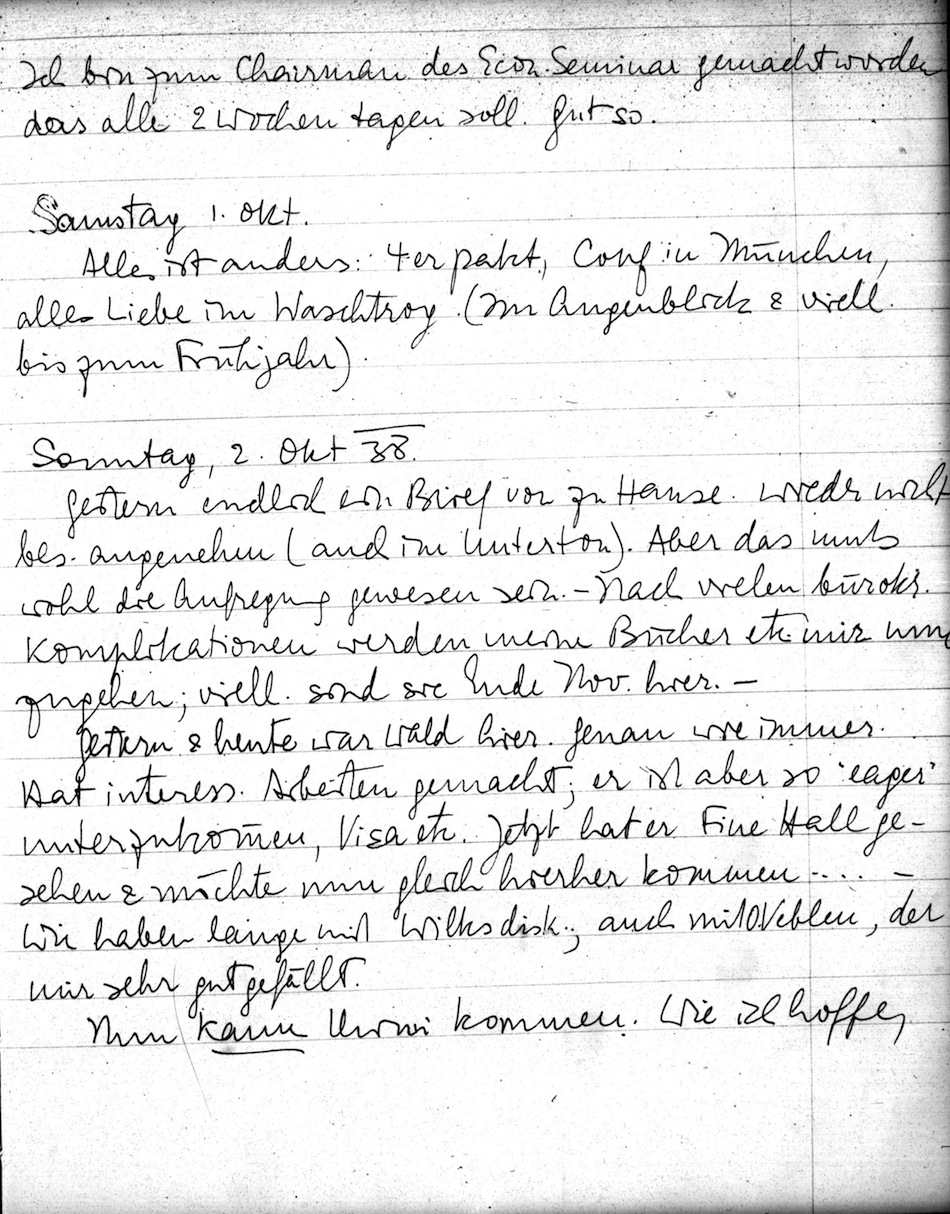 Ich bin zum Chairman des Econ. Seminar gemacht worden
das alle 2 Wochen tagen soll. Gut so.
Samstag 1. Okt.
Alles ist anders: 4er pakt, Conf in München,
alles Liebe im Waschtrog. (Im Augenblick & viell.
bis zum Frühjahr).
Sonntag, 2. Okt 38.
Gestern endlich ein Brief von zu Hause. Wieder nicht
bes. angenehm (auch im Unterton). Aber das muss
wohl die Aufregung gewesen sein. – Nach vielen bürokr.
Komplikationen werden meine Bücher etc mir nun
zugehen; viell. sind sie Ende Nov. hier. –
Gestern & heute war Wald hier. Genau wie immer.
Hat interess. Arbeiten gemacht; er ist aber so 'eager'
unterzukom̄en, Visa etc. Jetzt hat er Fine Hall ge-
sehen & möchte nun gleich hierher kommen .... –
Wir haben lange mit Wilks disk.; auch mit O. Veblen, der
mir sehr gut gefällt.
Nun kann kommen. Wie ich hoffe,